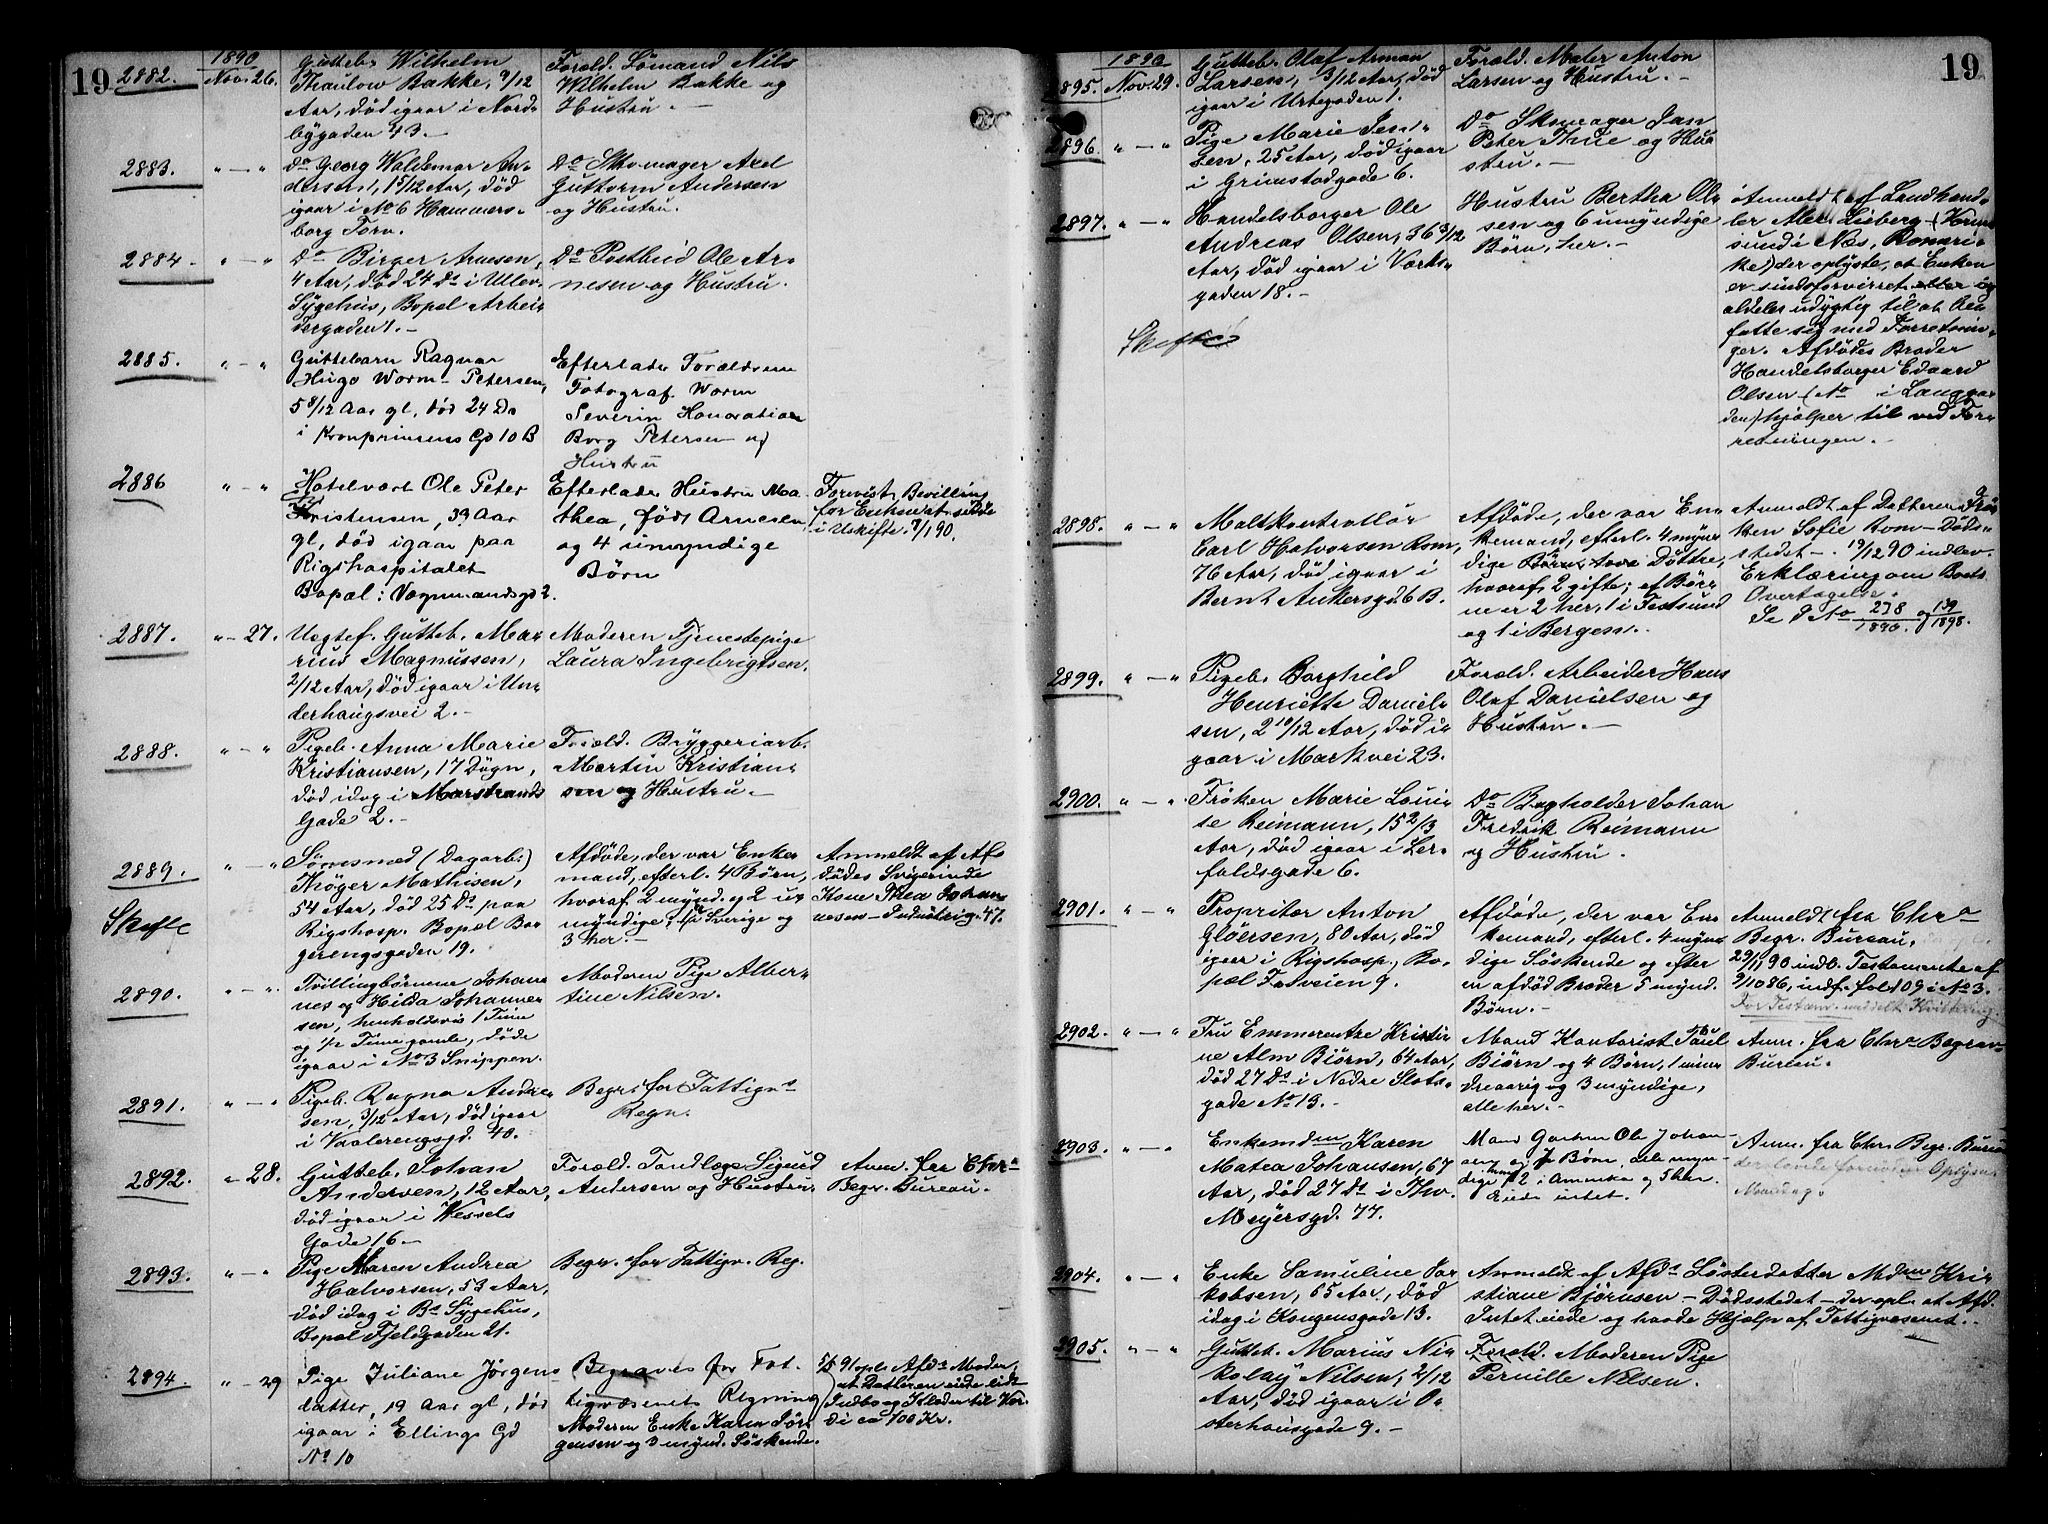 19
1890
2882.
Nov. 26.
Gutteb. Wilhelm
Thaulow Bakke, 9/12
Aar, død igaar i Nord-
bygaden 43.-
Foræld. Sømand Nils
Wilhelm Bakke og
Hustru.-
2883.
" - "
Do Georg Waldemar An-
dersen, 1 5/12 Aar, død
igaar i No 6 Hammers-
borg Torv.
Do Skomager Axel
Guttorm Andersen
og Hustru.
2884.
" - "
Do Birger Arnesen,
4 Aar, død 24 Ds i Ullev.
Sygehus, Bopæl Arbei-
dergaden 1.-
Do Postbud Ole Ar-
nesen og Hustru.
2885.
" - "
Guttebarn Ragnar
Hugo Worm-Petersen,
5 8/12 Aar gl, død 24 Ds
i Kronprinsens Gd 10 B
Efterlader Forældrene
Fotograf Worm
Severin Honoratio
Borg Petersen og
Hustru
2886
" - "
Hotelvært Ole Peter
Kristensen, 39 Aar
gl, død igaar paa
Rigshospitalet
Bopæl: Vognmandsgd 2.
Efterlader Hustru Ma-
thea, født Arnesen
og 4 umyndige
Børn
Forevist Bevilling
for Enken at sidde
i Uskifte. 7/1 90.
2887.
" - 27.
Uegtef. Gutteb. Ma-
rius Magnussen,
2/12 Aar, død igaar i Un-
derhaugsvei 2.-
Moderen Tjenestepige
Laura Ingebrigtsen.
2888.
" - "
Pigeb. Anna Marie
Kristiansen, 17 Døgn,
død idag i Marstrands
Gade 2.-
Foræld. Bryggeriarb.
Martin Kristian-
sen og Hustru.-
2889.
Skifte
" - "
Tømresmed (Dagarb.)
Thøger Mathisen,
54 Aar, død 25 Ds paa
Rigshosp. Bopæl Bor
gerengsgaden 19.
Afdøde, der var Enke-
mand, efterl. 4 Børn,
hvoraf 2 mynd. og 2 u-
myndige, 1 i Sverige og
3 her.-
Anmeldt af Af-
dødes Svigerinde
Kone Thea Johan-
nesen - Industrig. 47.
2890.
" - "
Tvillingbørnene Johan-
nes og Hilda Johannes-
sen, henholdsvis 1 Time
og 1/2 Time gamle, døde
igaar i No 3 Snippen.
Moderen Pige Alber-
tine Nilsen.
2891.
" - "
Pigeb. Ragna Andre-
sen, 3/12 Aar, død igaar
i Vaalerengsgd. 40.
Begr. for Fattigvs
Regn.
2892.
" 28.
Gutteb. Johan
Andersen, 12 Aar,
død igaar i Wessels
Gade 16.-
Foræld. Tandlæge Sigurd
Andersen og Hustru.
Anm. fra Chra
Begr. Bureau.
2893.
" - "
Pige Maren Andrea
Halvorsen, 53 Aar,
død idag i Bs Sygehus,
Bopæl Fjeldgaden 21.
Begr. for Fattigv. Reg.
2894.
" - 29
Pige Juliane Jørgens
datter, 19 Aar gl, død
igaar i Ellings Gd
No 10
Begraves for Fat-
tigvæsenets Regning
Moderen Enke Karen Jør-
gensen og 3 mynd. Søskende.
7/5 91 opl. Afds Moder,
at Datteren eiede lidt
Indbo og Klæder til Vær-
di ca 100 Kr.
19
1890
2895.
Nov. 29.
Gutteb. Olaf Arman
Larsen, 3/12 Aar, død
igaar i Urtegaden 1.
Foræld. Maler Anton
Larsen og Hustru.-
2896.
" - "
Pige Marie Jen-
sen, 25 Aar, død igaar
i Grimstadgade 6.
Do Skomager Jan
Peter Thue og Hu-
stru.-
2897.
" - "
Skifte
Handelsborger Ole
Andreas Olsen, 36 3/12
Aar, død igaar i Værks-
gaden 18.-
Hustru Bertha Ol-
sen og 6 umyndige
Børn, her.-
Anmeldt af Landhand-
ler Alex. Lieberg (
sund i Næs, Romeri-
ke) der oplyste, at Enken
er sindsforvirret eller
aldeles udygtig til at be-
fatte sig med Forretnin-
ger. Afdødes Broder
Handelsborger Edvard
Olsen (No i Langgaar
den) hjælper til ved For-
retningen.-
2898.
" - "
Maltkontrollør
Carl Halvorsen Rom,
76 Aar, død igaar i
Bernt Ankersgd. 6 B.
Afdøde, der var En-
kemand, efterl. 4 myn-
dige Børn, Døttre,
hvoraf 2 gifte; af Bør-
ne er 2 her, 1 i
og 1 i Bergen.-
Anmeldt af Datteren Frø-
ken Sofie Rom - Døds-
stedet -. 19/12 90 indlev.
Erklæring om Boets
Overtagelse.
Se P No 278/1890 og 139/1898.
2899.
" - "
Pigeb. Borghild
Henriette Daniel-
sen, 2 10/12 Aar, død i-
gaar i Markvei 23.
Foræld. Arbeider Hans
Olaf Danielsen og
Hustru.-
2900.
" - "
Frøken Marie Loui-
se Reimann, 15 2/3
Aar, død igaar i Ler-
foldsgade 6.
Do Bogholder Johan
Fredrik Reimann
og Hustru.
2901.
" - "
Propritær Anton
Gløersen, 80 Aar, død
igaar i Rigshosp., Bo-
pæl Fatveien 9.
Afdøde, der var En-
kemand, efterl. 4 myn-
dige Søskende og efter
en afdød Broder 5 mynd.
Børn.-
Anmeldt fra Chra
Begr. Bureau.
29/11 90 indb. Testamente af
9/10 86, indf. fol 109 i No 3.
For Testam. meddelt Kvittering.
2902.
" - "
Fru Emmerentze Kristi-
ne Alm Biørn, 64 Aar,
død 27 Ds i Nedre Slots-
gade No 13.-
Mand Kontorist Paul
Biørn og 4 Børn, 1 min-
dreaarig og 3 myndige,
alle her.-
Anm. fra Chra Begrav-
Bureau.
2903.
" - "
Enkemdm Karen
Matea Johansen, 67
Aar, død 27 Ds i Thv.
Meyersgd. 77.
Mand Ole Johan-
sen og 7 Børn, alle myn-
dige, 2 i Amerika og 5 her.
Eiede intet.
Anm. fra Chr. Begr. Bureau
der lovede fornøden Oplysn.
Mandag.
2904.
" - "
Enke Samuline Ja-
kobsen, 65 Aar, død
idag i Kongensgade 13.
Anmeldt af Afds Søsterdatter Mdme Kri-
stiane Bjørnsen - Dødsstedet - der opl. at Afd.
Intet eiede og havde Hjælp af Fattigvæsenet.-
2905.
" - "
Gutteb. Marius Ni-
kolay Nilsen, 2/12
Aar, død igaar i O-
sterhausgade 9.-
Foræld. Moderen Pige
Pernille Nilsen.